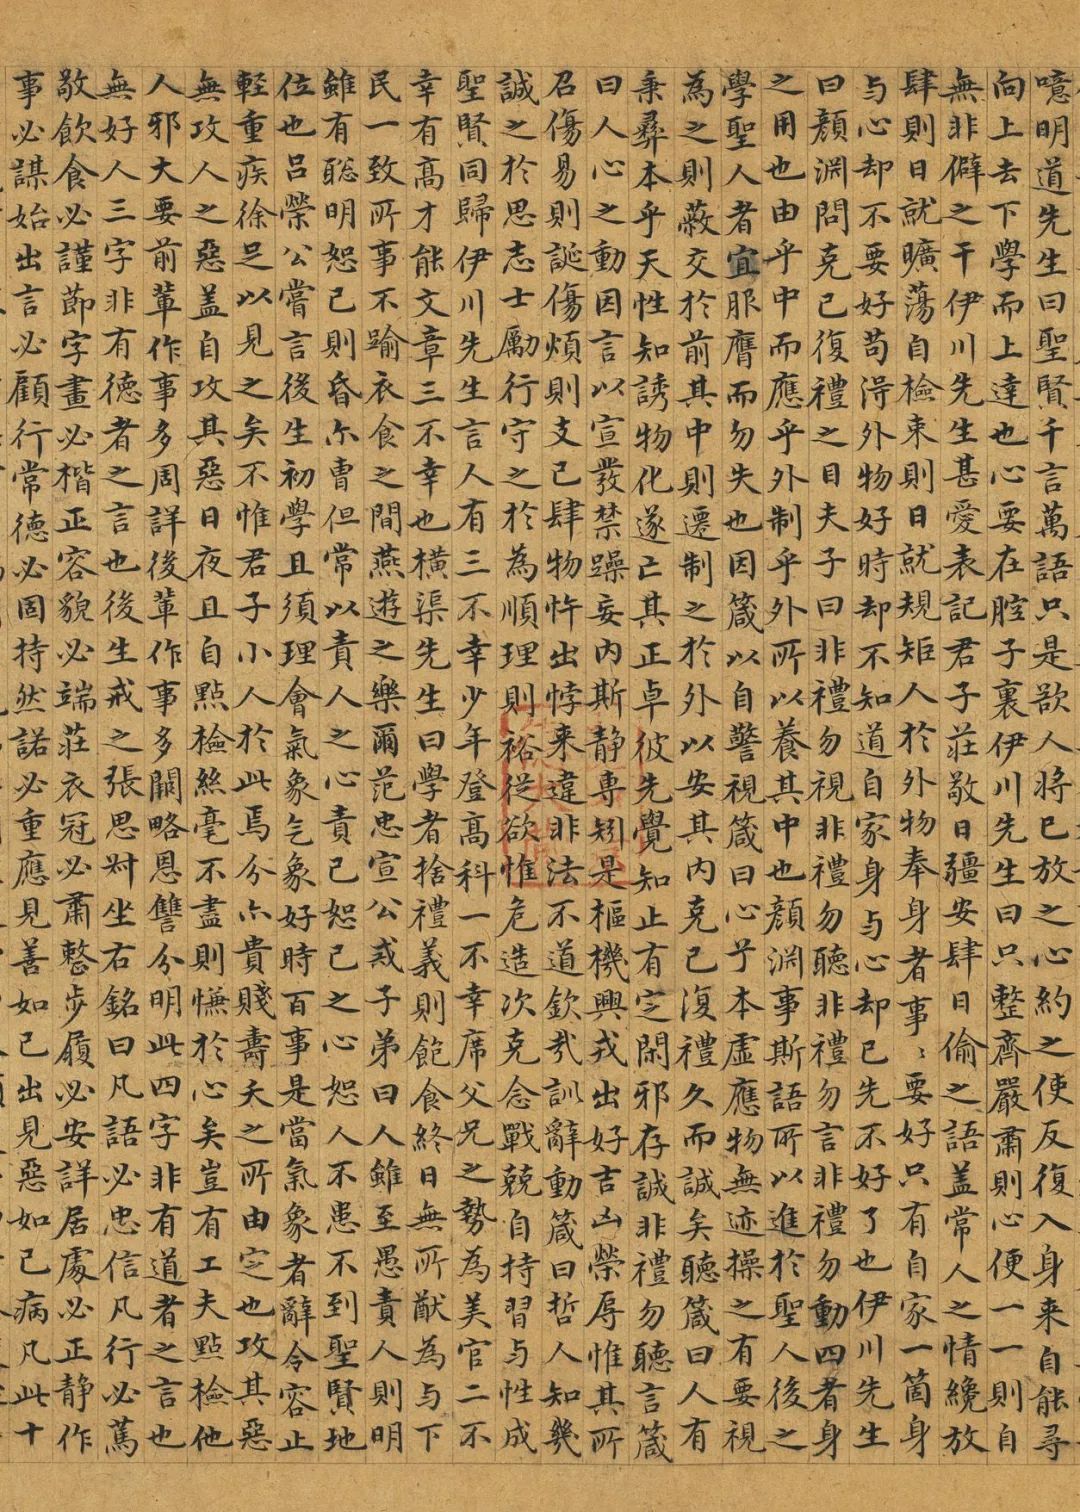 噫明道先生曰聖賢千言萬語只是欲人將已放之心約之使反復入身来自能尋
向上去下學而上達也心要在腔子裏伊川先生曰只整齊嚴肅則心便一一則自
無非僻之干伊川先生甚愛表記君子莊敬日彊安肆日偷之語盖常人之情纔放
肆則日就曠蕩自檢束則日就規矩人於外物奉身者事〻要好只有自家一箇身
与心却不要好苟淂外物好時却不知道自家身与心却已先不好了也伊川先生
曰顏淵問克己復禮之目夫子曰非禮勿視非禮勿聽非禮勿言非禮勿動四者身
之用也由乎中而應乎外制乎外所以養其中也顏淵事斯語所以進於聖人後之
學聖人者宜服膺而勿失也因箴以自警視箴曰心乎本虛應物無迹操之有要視
為之則蔽交於前其中則遷制之於外以安其内克己復禮久而誠矣聽箴曰人有
秉彝本乎天性知誘物化遂亡其正卓彼先覺知止有定閑邪存誠非禮勿聽言箴
曰人心之動因言以宣發禁躁妄内斯静専矧是樞機興戎出好吉凶榮辱惟其所
召傷易則誕傷煩則支己肆物忤出悖来違非法不道欽㢤訓辭動箴曰哲人知幾
誠之於思志士勵行守之於為順理則裕從欲惟危造次克念戰兢自持習与性成
聖賢同歸伊川先生言人有三不幸少年登高科一不幸席父兄之勢為美官二不
幸有高才能文章三不幸也橫渠先生曰學者捨禮義則飽食終日無所猷為与下
民一致所事不踰衣食之間燕遊之樂爾范忠宣公戒子弟曰人雖至愚責人則明
雖有聡明恕己則昏尒曹但常以責人之心責己恕己之心恕人不患不到聖賢地
位也呂榮公嘗言後生初學且須理會氣象气象好時百事是當氣象者辭令容止
軽重疾徐足以見之矣不惟君子小人於此焉分亦貴賤壽夭之所由定也攻其惡
無攻人之惡盖自攻其惡日夜且自點檢絲毫不盡則慊於心矣豈有工夫點檢他
人邪大要前輩作事多周詳後輩作事多闕略恩讐分明此四字非有道者之言也
無好人三字非有徳者之言也後生戒之張思叔坐右銘曰凡語必忠信凡行必篤
敬飲食必謹節字畫必楷正容貌必端莊衣冠必肅整步履必安詳居處必正静作
事必謀始出言必顧行常徳必固持然諾必重應見善如己出見惡如己病凡此十